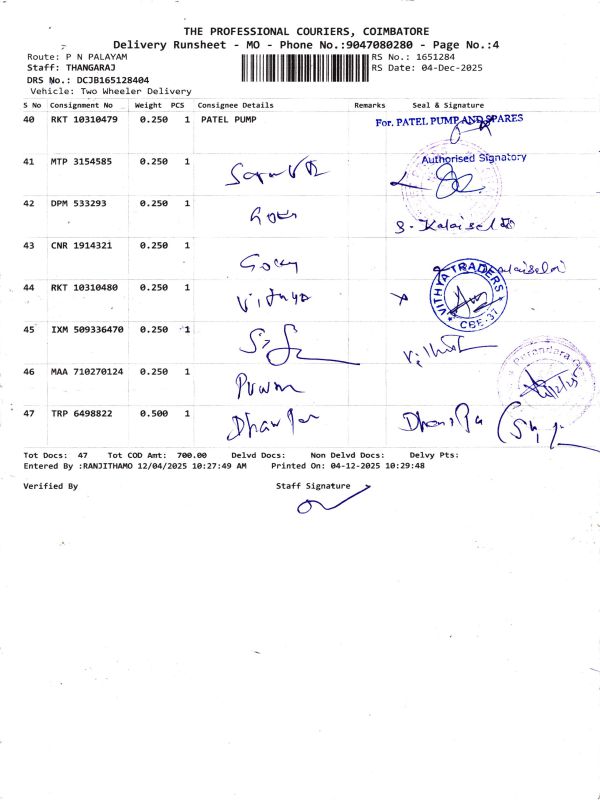 THE PROFESSIONAL COURIERS, COIMBATORE
Delivery Runsheet - MO - Phone No.:9047080280 - Page No.:4
Route: P N PALAYAM
RS No.: 1651284
Staff: THANGARAJ
RS Date: 04-Dec-2025
DRS No.: DCJB165128404
Vehicle: Two Wheeler Delivery
S No Consignment No Weight PCS Consignee Details Remarks Seal & Signature
40 RKT 10310479 0.250 1 PATEL PUMP
For. PATEL PUMP AND SPARES
Authorised Signatory
41 MTP 3154585 0.250 1
42 DPM 533293 0.250 1
S. Kalaiselvi
43 CNR 1914321 0.250 1 Gocky
44 RKT 10310480 0.250 1 Vithya
VITHYA TRADERS
CBE-37
45 IXM 509336470 0.250 1
46 MAA 710270124 0.250 1
47 TRP 6498822 0.500 1
Tot Docs: 47 Tot COD Amt: 700.00 Delvd Docs: Non Delvd Docs: Delvy Pts:
Entered By :RANJITHAMO 12/04/2025 10:27:49 AM Printed On: 04-12-2025 10:29:48
Verified By Staff Signature